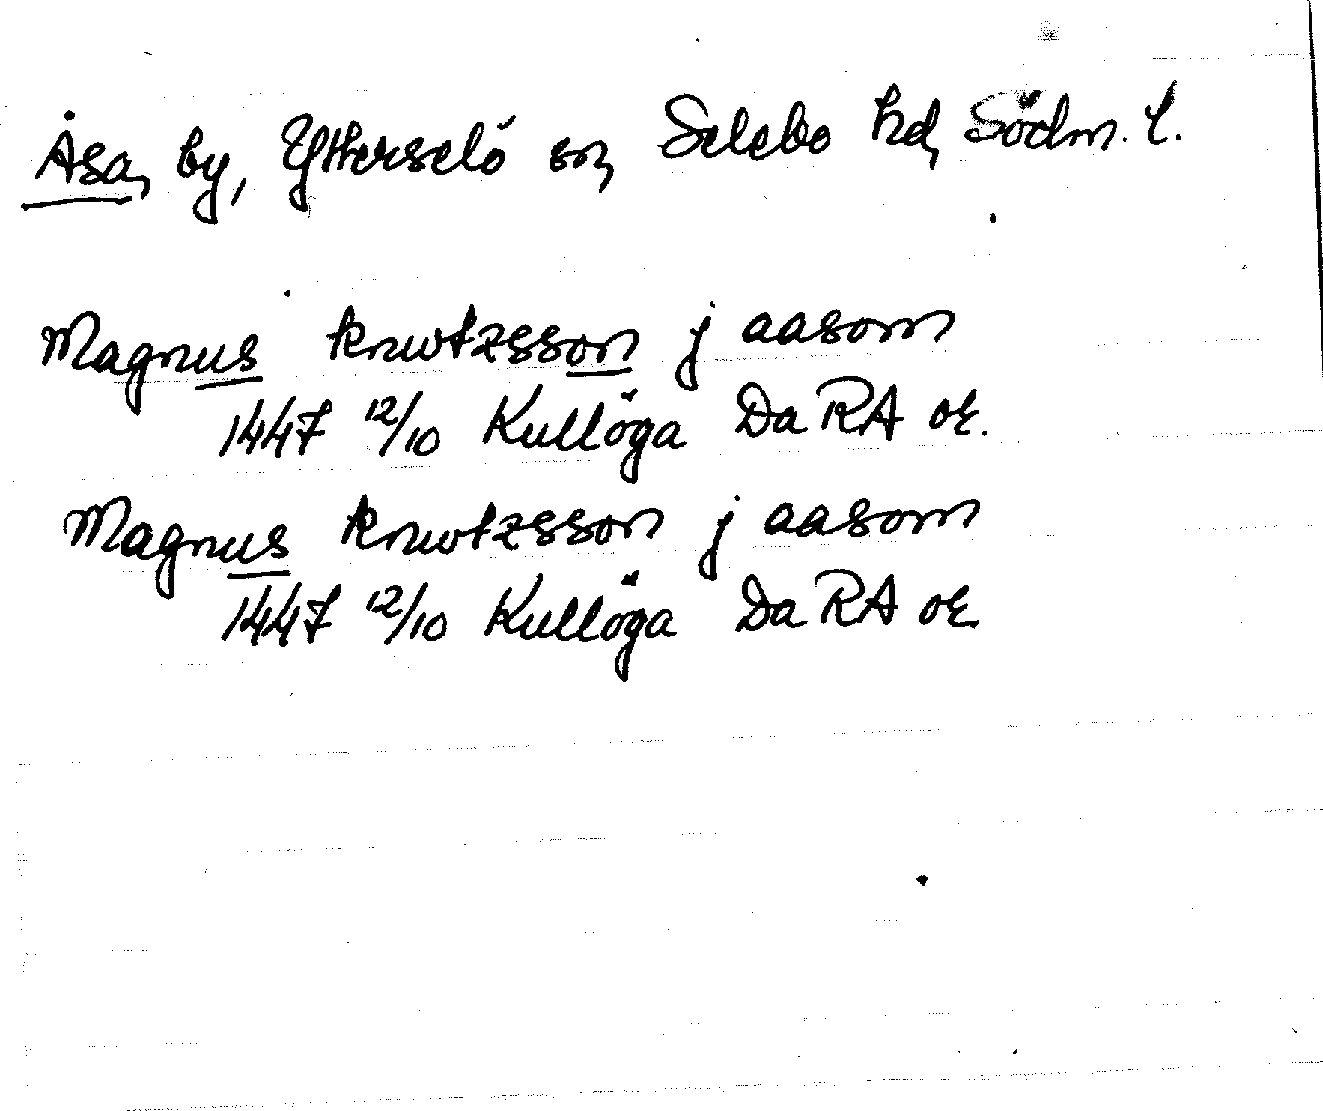 Åsa, by, Ytterselö sn, Selebo hd, Södm. l.
Magnus knutzsson j aasom
1447 12/10 Kullöga Da RA or.
Magnus knutzsson j aasom
1447 12/10 Kullöga Da RA or.